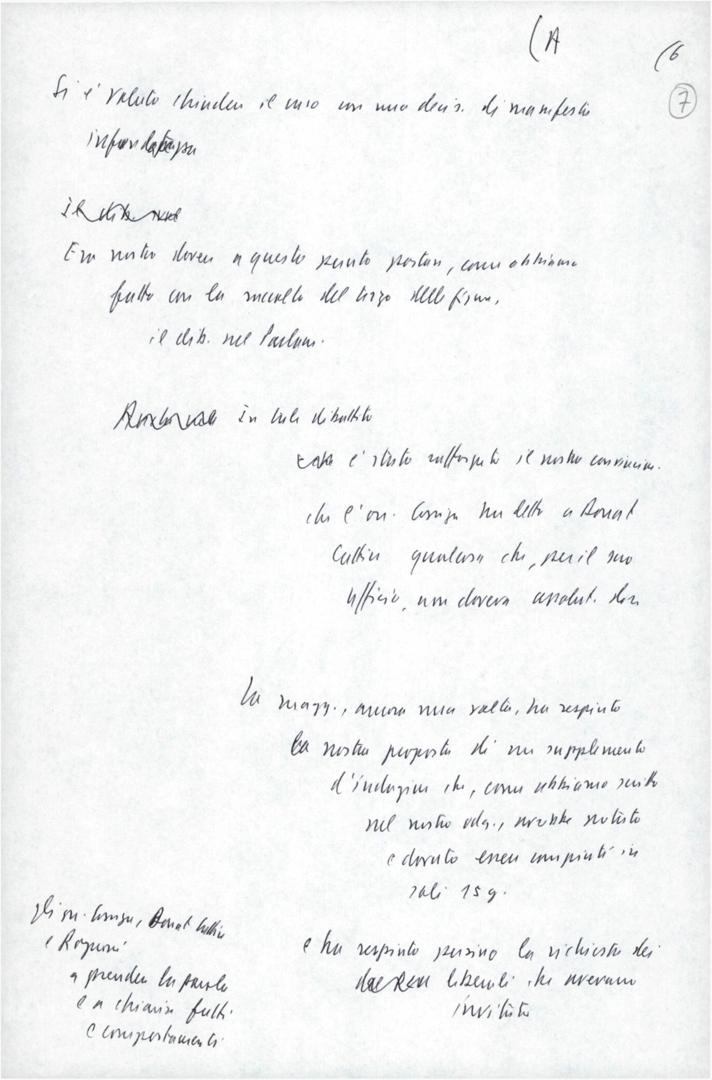 (A
(6
7
Si è voluto chiudere il caso con una decis. di manifesta
infondatezza
Era nostro dovere a questo punto portare, come abbiamo
fatto con la raccolta del terzo delle firme,
il dib. nel Parlam.
In tale dibattito
è stato rafforzato il nostro convincim.
che l'on. Cossiga ha detto a Donat
Cattin qualcosa che, per il suo
ufficio, non doveva assolut. dire
La magg., ancora una volta, ha respinto
la nostra proposta di un supplemento
d'indagini che, come abbiamo scritto
nel nostro odg., avrebbe potuto
e dovuto essere compiuto in
soli 15 g.
e ha respinto persino la richiesta dei
liberali che avevano
invitato
gli on. Cossiga, Donat Cattin
e Rognoni
a prendere la parola
e a chiarire fatti
e comportamenti